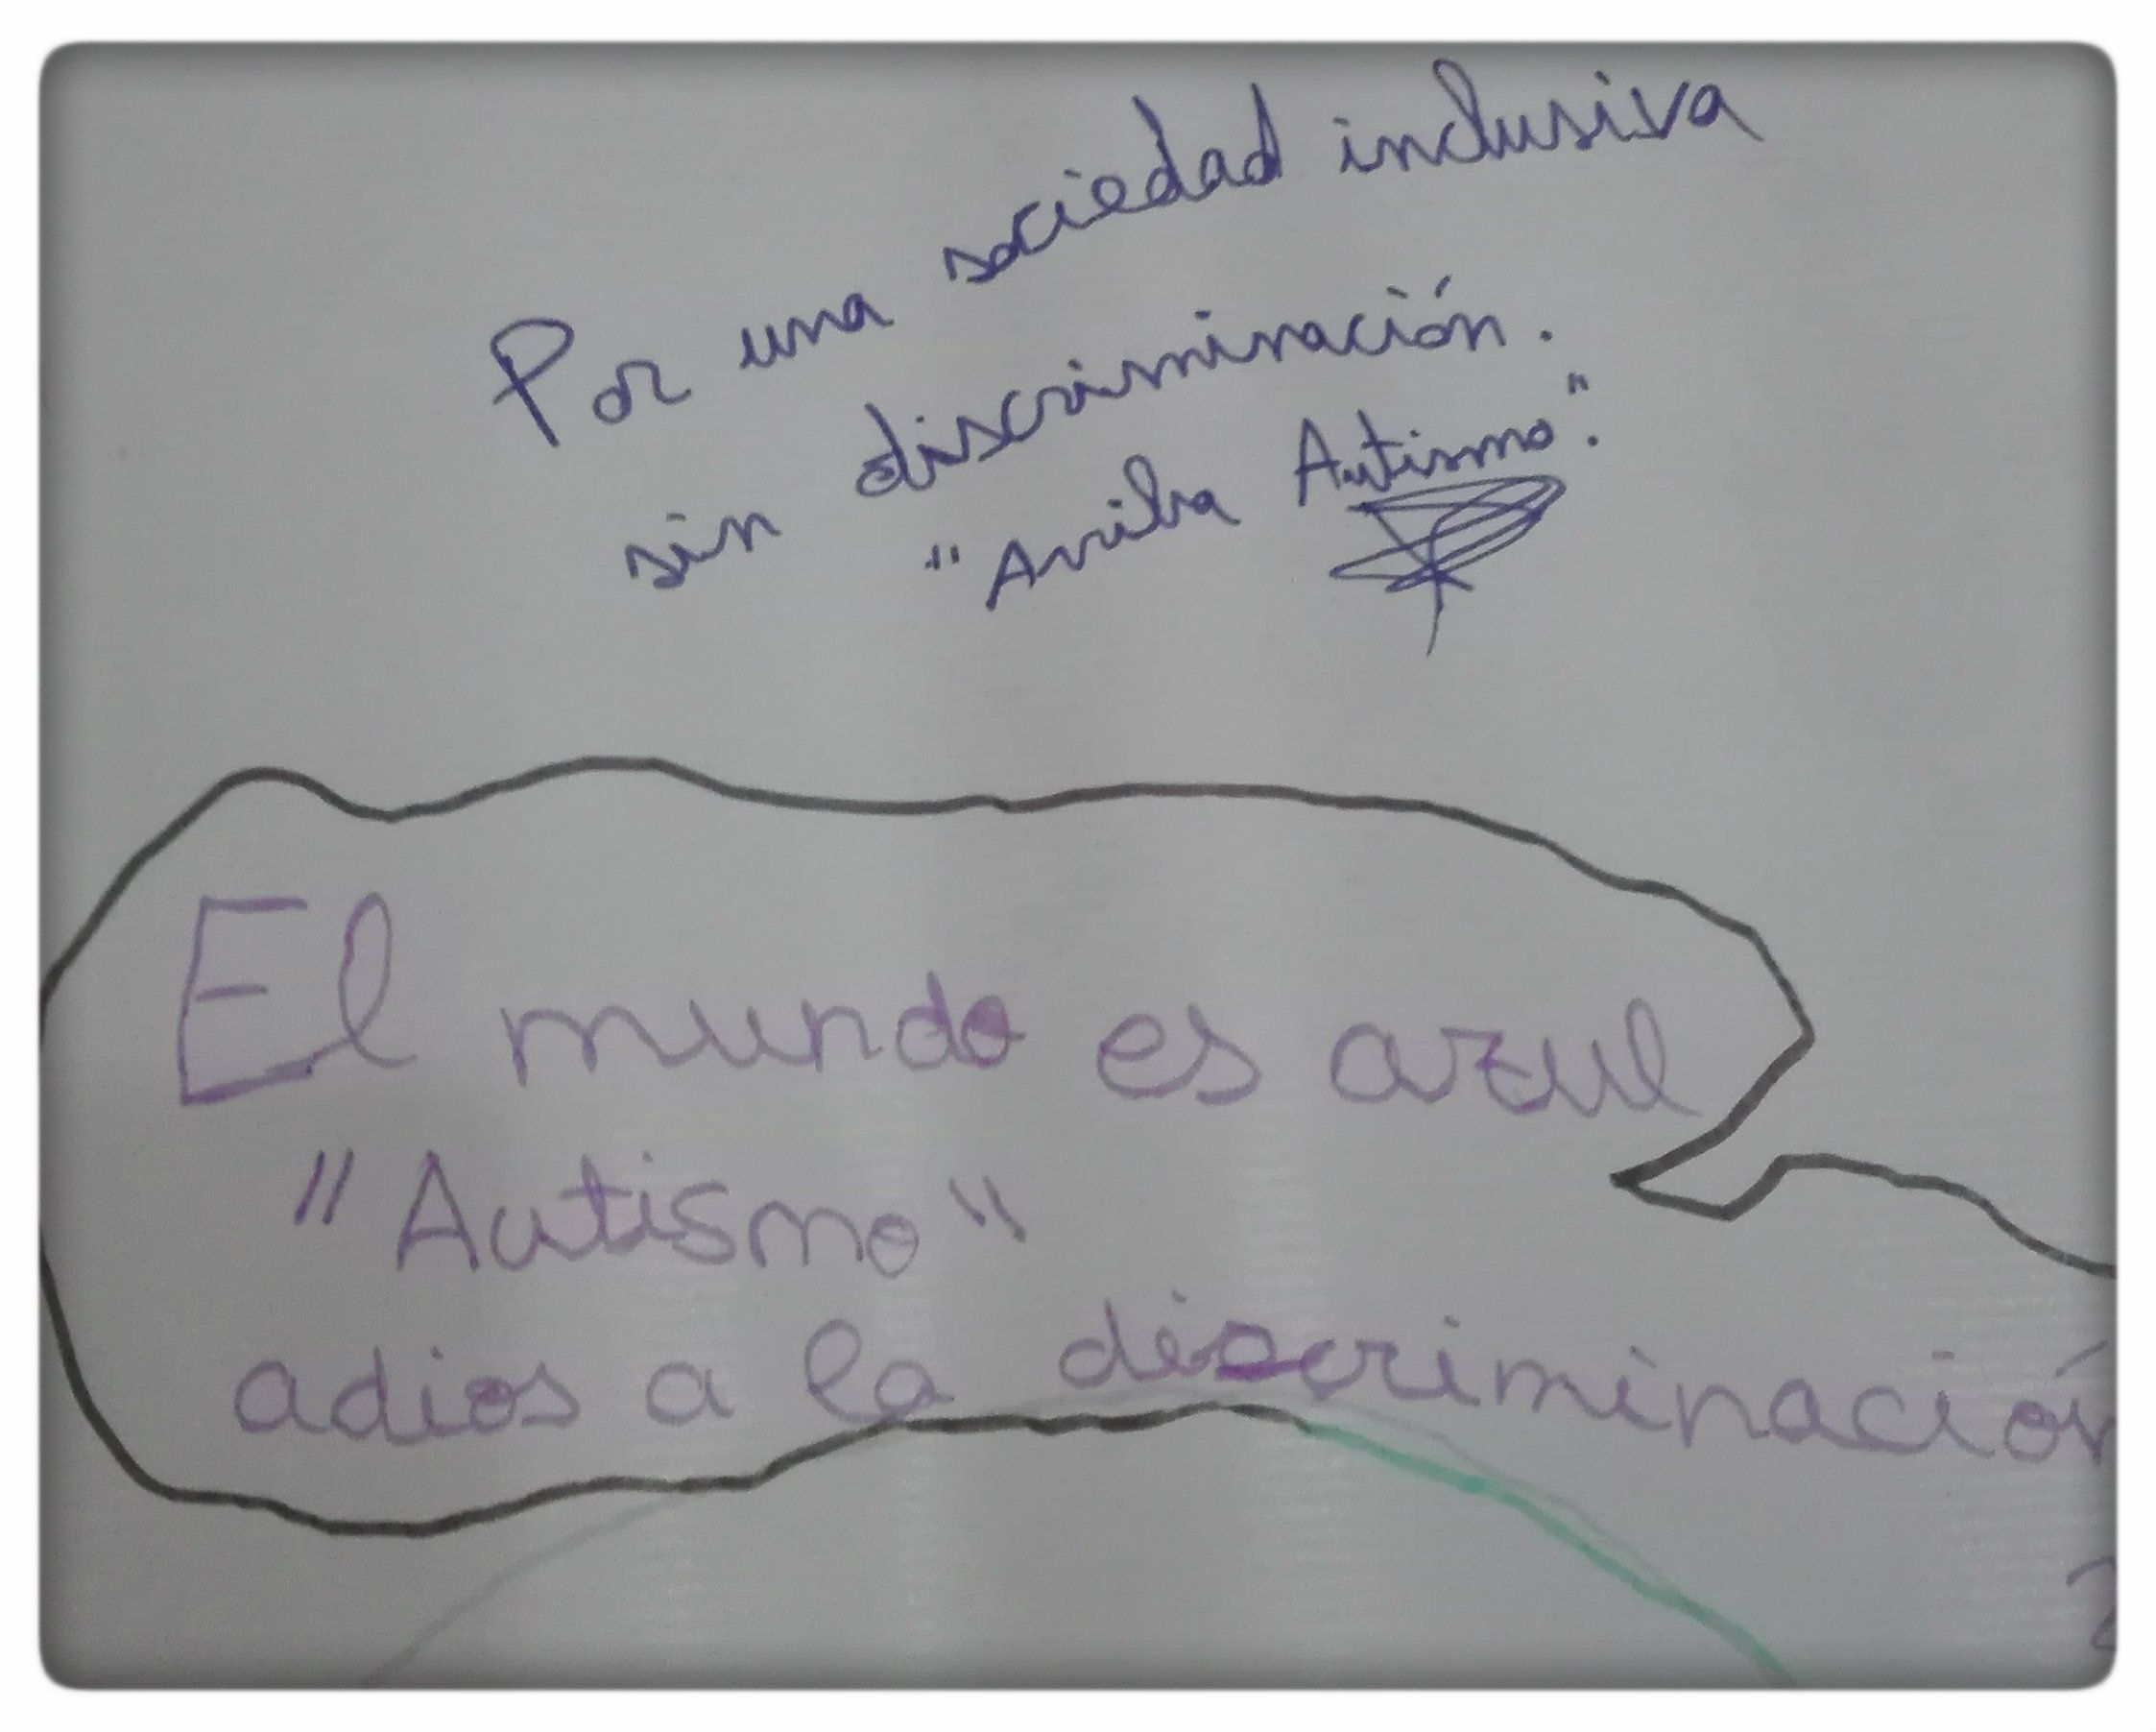 Por una sociedad inclusiva
sin discriminación.
"Arriba Autismo".
El mundo es azul
"Autismo"
adios a la discriminación